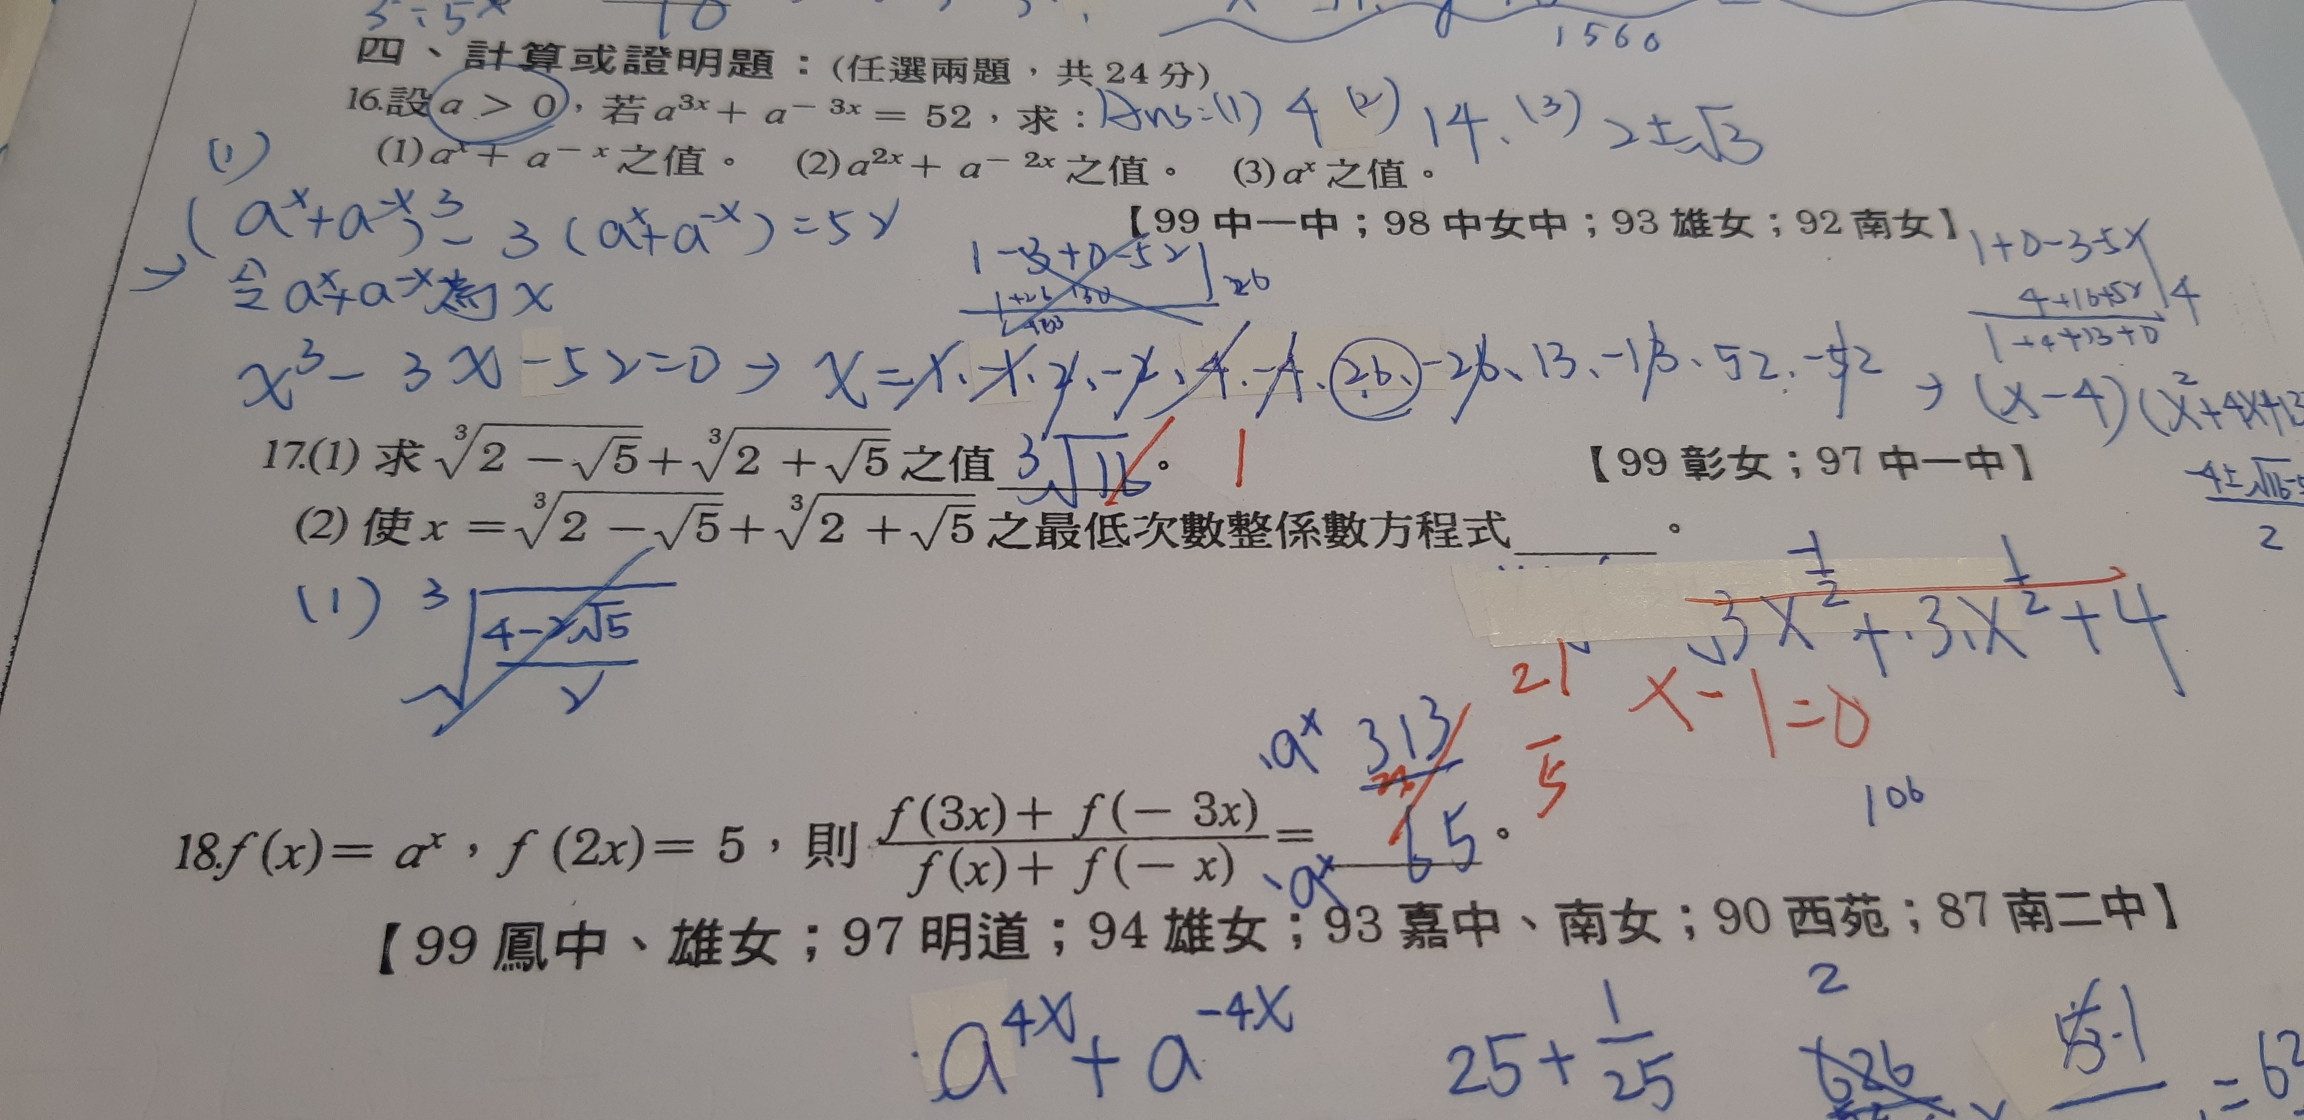 1560
四、計算或證明題：(任選兩題，共24分)
16.設a > 0，若a³ˣ + a⁻³ˣ = 52，求： Ans=(1) 4 (2) 14、(3) 2±√3
(1)aˣ + a⁻ˣ之值。 (2)a²ˣ + a⁻²ˣ之值。 (3)aˣ之值。
(1)
(aˣ+a⁻ˣ)³ - 3(aˣ+a⁻ˣ) = 52
【99中一中；98中女中；93雄女；92南女】
→ 令aˣ+a⁻ˣ為x
1-3+0-52 | 26
1+0-3-52
4+16+52 | 4
1+4+13+0
x³ - 3x - 52 = 0 → x = 1、-1、2、-2、4、-4、26、-26、13、-13、52、-52 → (x-4)(x²+4x+13
17.(1)求∛(2 - √5) + ∛(2 + √5)之值 ³√16。 1 【99彰女；97中一中】
(2)使x = ∛(2 - √5) + ∛(2 + √5)之最低次數整係數方程式______。
(1) ³√((4-2√5)/2)
x-1=0
21/5
aˣ 313
106
18.f (x) = aˣ，f (2x) = 5，則 (f(3x) + f(- 3x))/(f(x) + f(- x)) = 65。
aˣ
【99鳳中、雄女；97明道；94雄女；93嘉中、南女；90西苑；87南二中】
a⁴ˣ + a⁻⁴ˣ 25 + 1/25 626